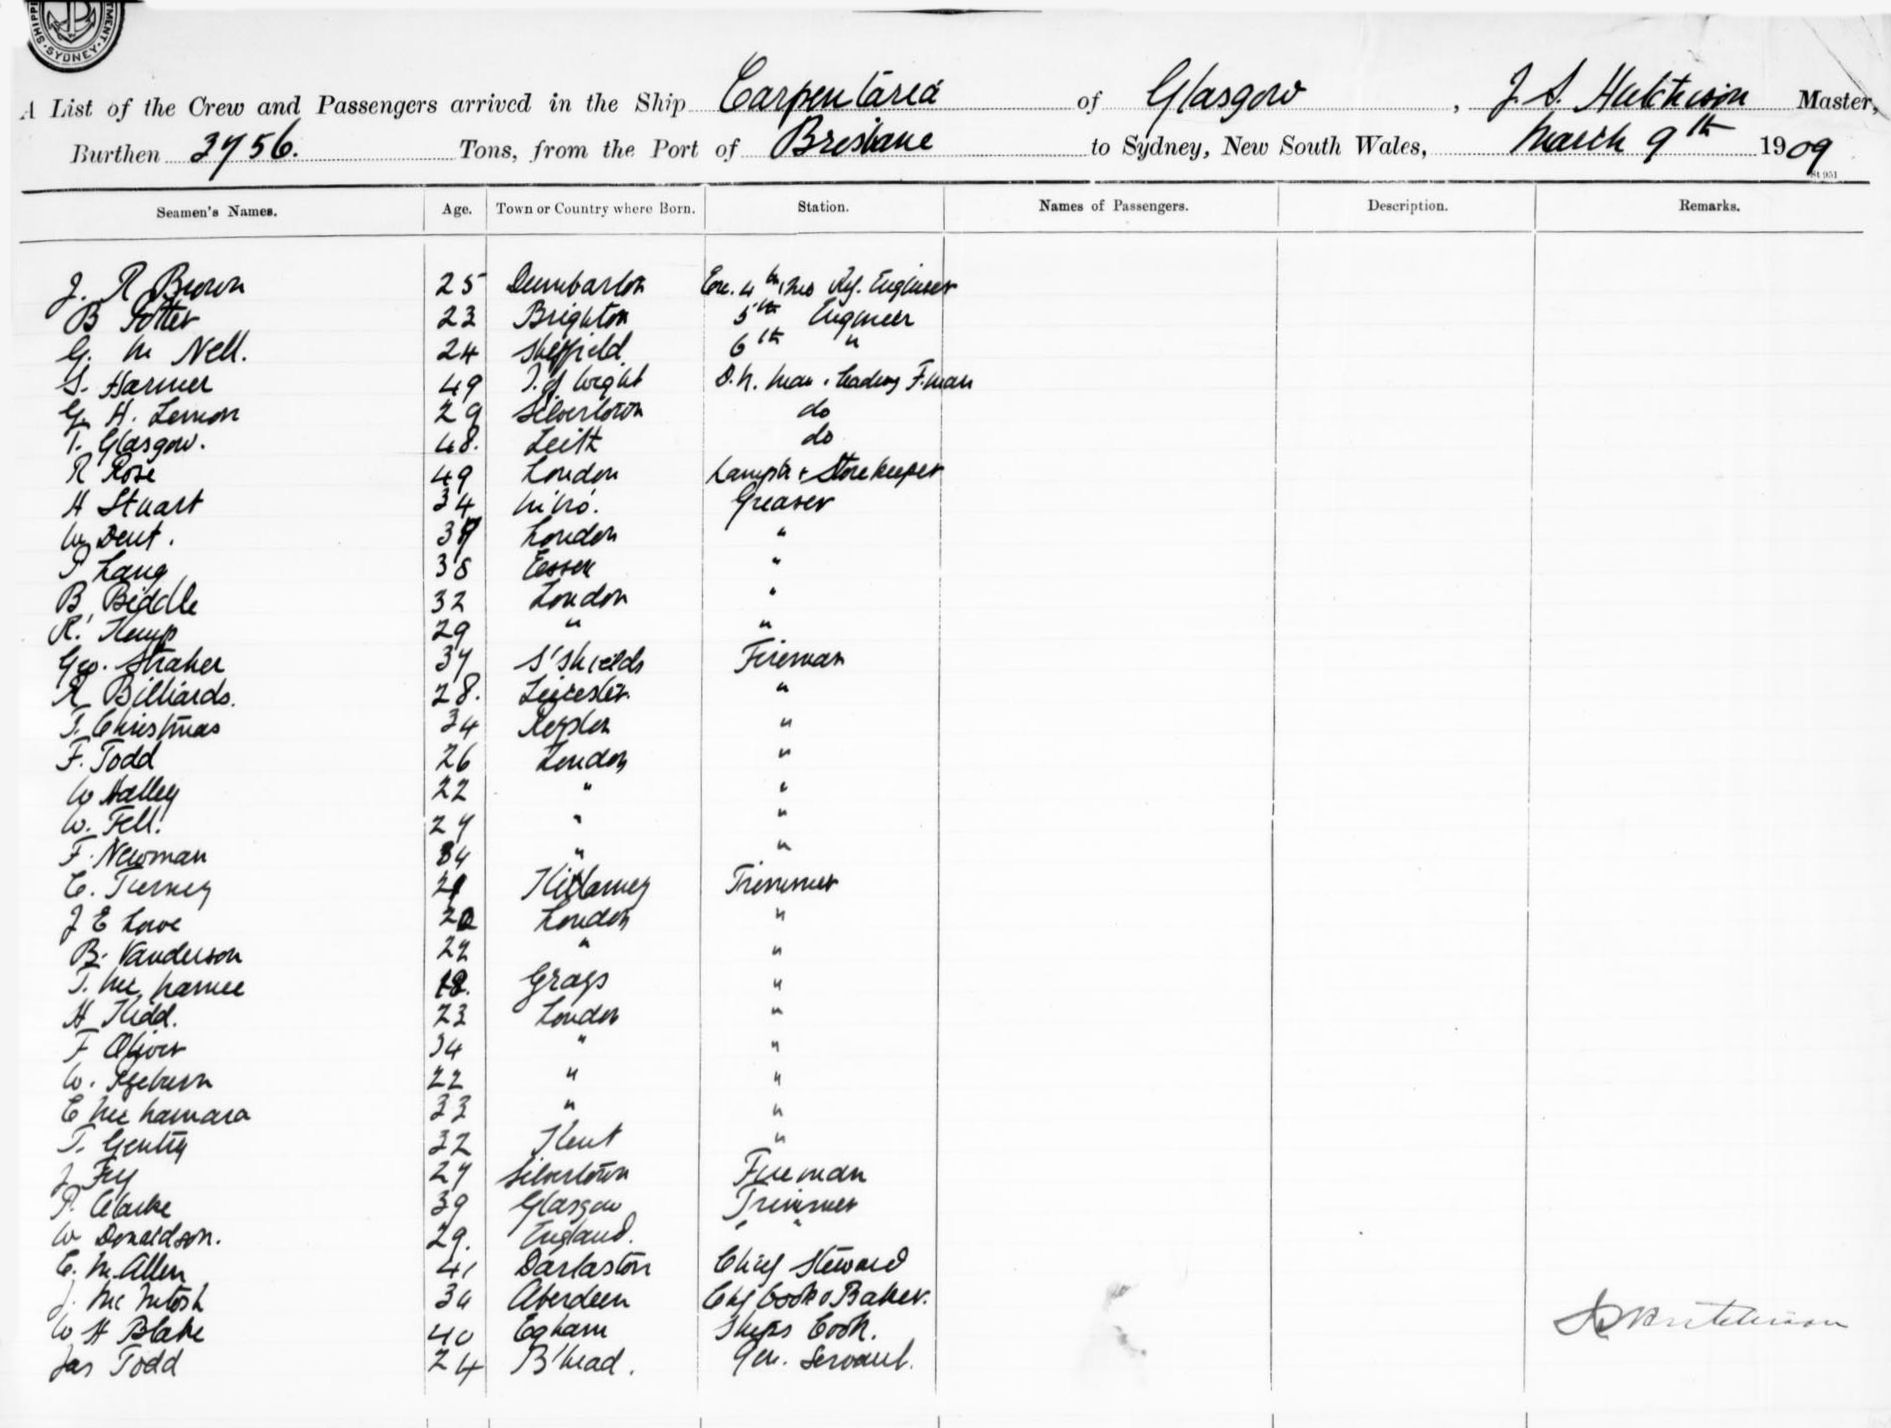 SHIPPING DEPARTMENT SYDNEY
A List of the Crew and Passengers arrived in the Ship Carpentaria of Glasgow, J. S. Hutchison Master,
Burthen 3756. Tons, from the Port of Brisbane to Sydney, New South Wales, March 9th 1909
St 951
Seamen's Names. Age. Town or Country where Born. Station. Names of Passengers. Description. Remarks.
J. R Brown 25 Dumbarton 4th Engineer
B Potter 23 Brighton 5th Engineer
G. M Nell. 24 Sheffield 6th "
S. Harmer 49 I. of Wight D.K. man & leading F.man
G. H. Lemon 29 Silvertown do
T. Glasgow. 48. Leith do
R Rose 49 London Lamps & Storekeeper
H Stuart 34 Greaser
W Dent. 39 London "
P Lang 38 Essex "
B. Biddle 32 London "
R. Kemp 29 " "
Geo. Straker 37 S'Shields Fireman
R Billiards. 28. Leicester "
T. Christmas 34 "
F. Todd 26 London "
W Halley 22 " "
W. Fell. 27 " "
F. Newman 34 " "
C. Tierney 21 Killarney Trimmer
J E Lowe 20 London "
B. Vanderson 22 " "
T. McNamee 18. Grays "
H Kidd. 23 London "
F Oliver 34 " "
W. 22 " "
C McNamara 33 " "
T. Gentry 32 Kent "
J Fry 27 Silvertown Fireman
P. Clarke 39 Glasgow Trimmer
W Donaldson. 29. England. " "
C. M. Allen 41 Darlaston Chief Steward
J. McIntosh 34 Aberdeen Chf Cook & Baker.
W H Blake 40 Egham Ships Cook.
Jas Todd 24 B'head. Gen. Servant.
J S Hutchison